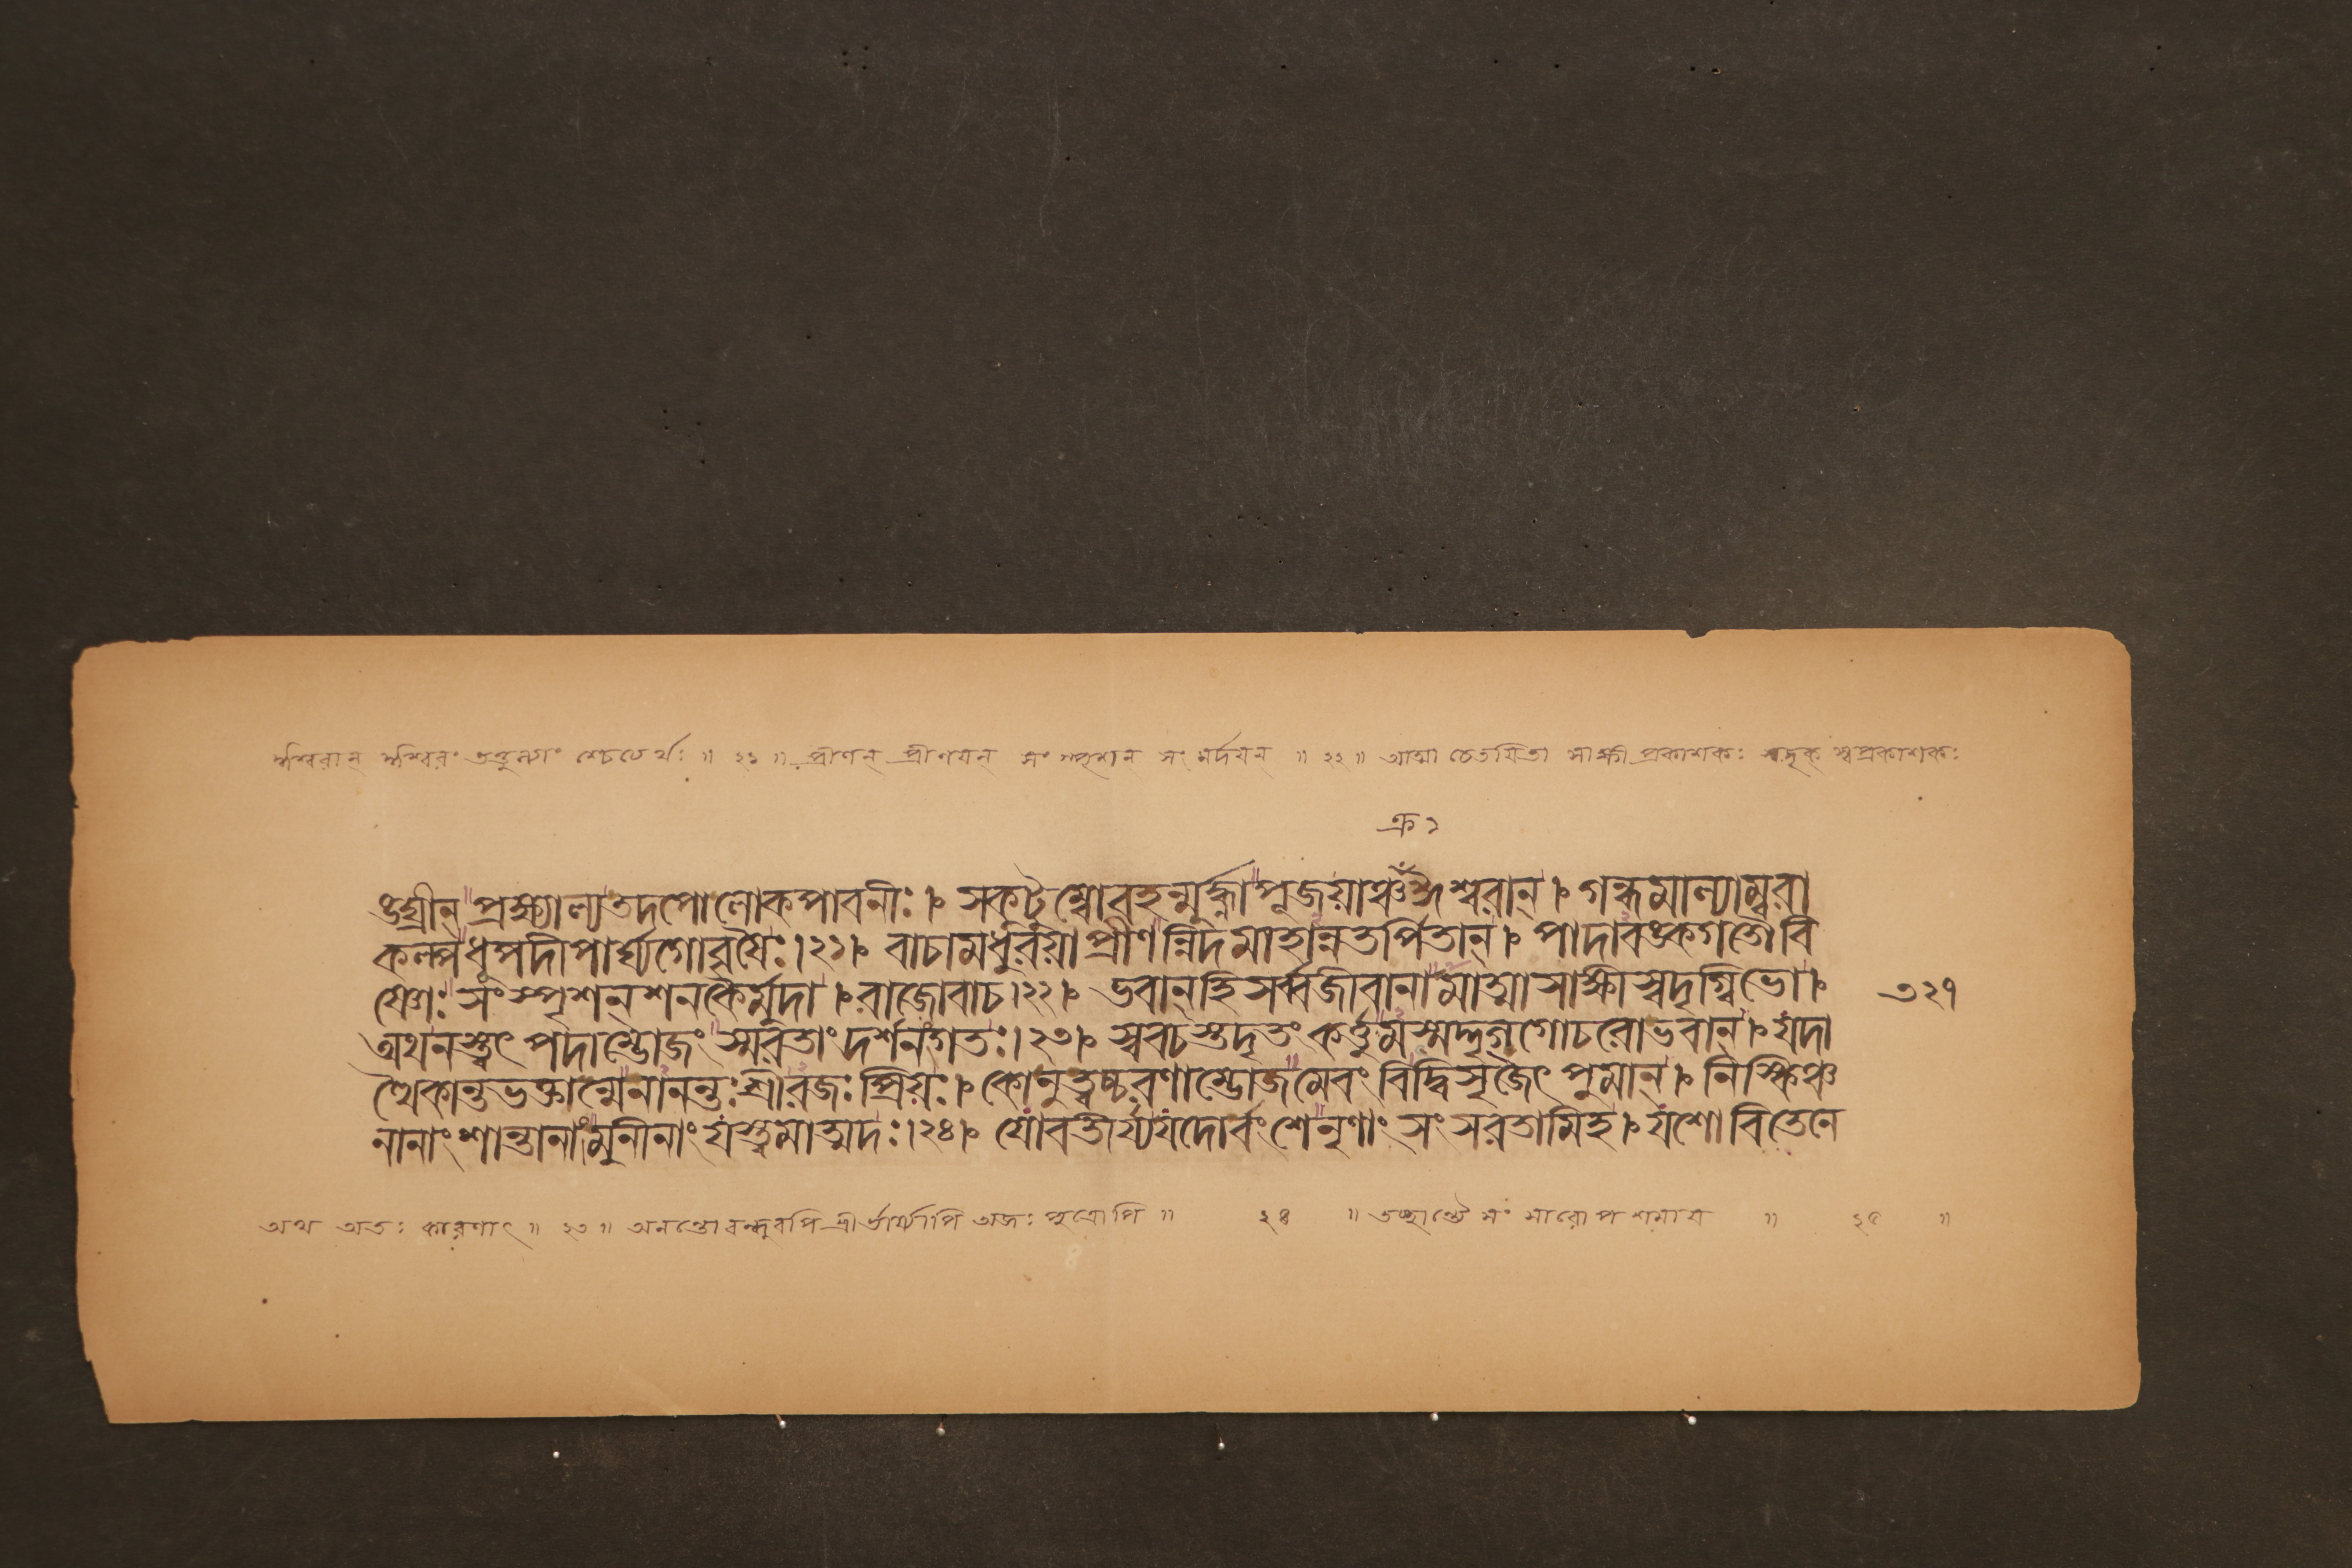 ঈশ্বরান ঈশ্বরং তত্তুল্যাং শ্চেত্যর্থঃ ॥ ২১ ॥ প্রীণন প্রীণয়ন সং স্পৃশন সং মর্দয়ন ॥ ২২ ॥ আত্মা চেতয়িতা সাক্ষী প্রকাশকঃ স্বদৃক স্বপ্রকাশকঃ
ক্র ১
ঙ্ঘ্রীন্ প্রক্ষ্যাল্যতদপোলোকপাবনীঃ । সকটুম্বোবহন্মূর্দ্ধ্নাপূজয়াঞ্চক্রঈশ্বরান্ । গন্ধমাল্যাম্বরা
কল্পধূপদীপার্ঘ্যগোবৃষৈঃ।২১। বাচামধুরয়াপ্রীণন্নিদমাহান্নতর্পিতান্ । পাদাবঙ্কগতৌবি
ষ্ণোঃ সংস্পৃশন্ শনকৈর্মুদা । রাজোবাচ।২২। ভবান্ হিসর্ব্বজীবানামাত্মাসাক্ষীস্বদৃগ্বিভো। ৩২৭
অথনস্ত্বৎ পদাম্ভোজং স্মরতাং দর্শনংগতঃ।২৩। স্ববচস্তদৃতং কর্ত্তুমস্মদ্দৃগ্ গোচরোভবান্ । যদা
ত্থৈকান্তভক্তান্মেনানন্তঃশ্রীরজঃ প্রিয়ঃ। কোনুত্বচ্চরণাম্ভোজমেবং বিদ্বিসৃজেৎ পুমান্ । নিস্কিঞ্চ
নানাংশান্তানাংমুনীনাং যস্ত্বমাত্মদঃ।২৪। যোবতীর্য্যযদোর্বংশেনৃণাং সংসরতামিহ। যশোবিতেনে
অথ অতঃ কারণাৎ ॥ ২৩ ॥ অনন্তোবন্ধুরপি শ্রীর্ভার্য্যাপি অজঃ পুত্রোপি ॥ ২৪ ॥ তচ্ছান্ত্যৈ সং সারোপ শমায় ॥ ২৫ ॥